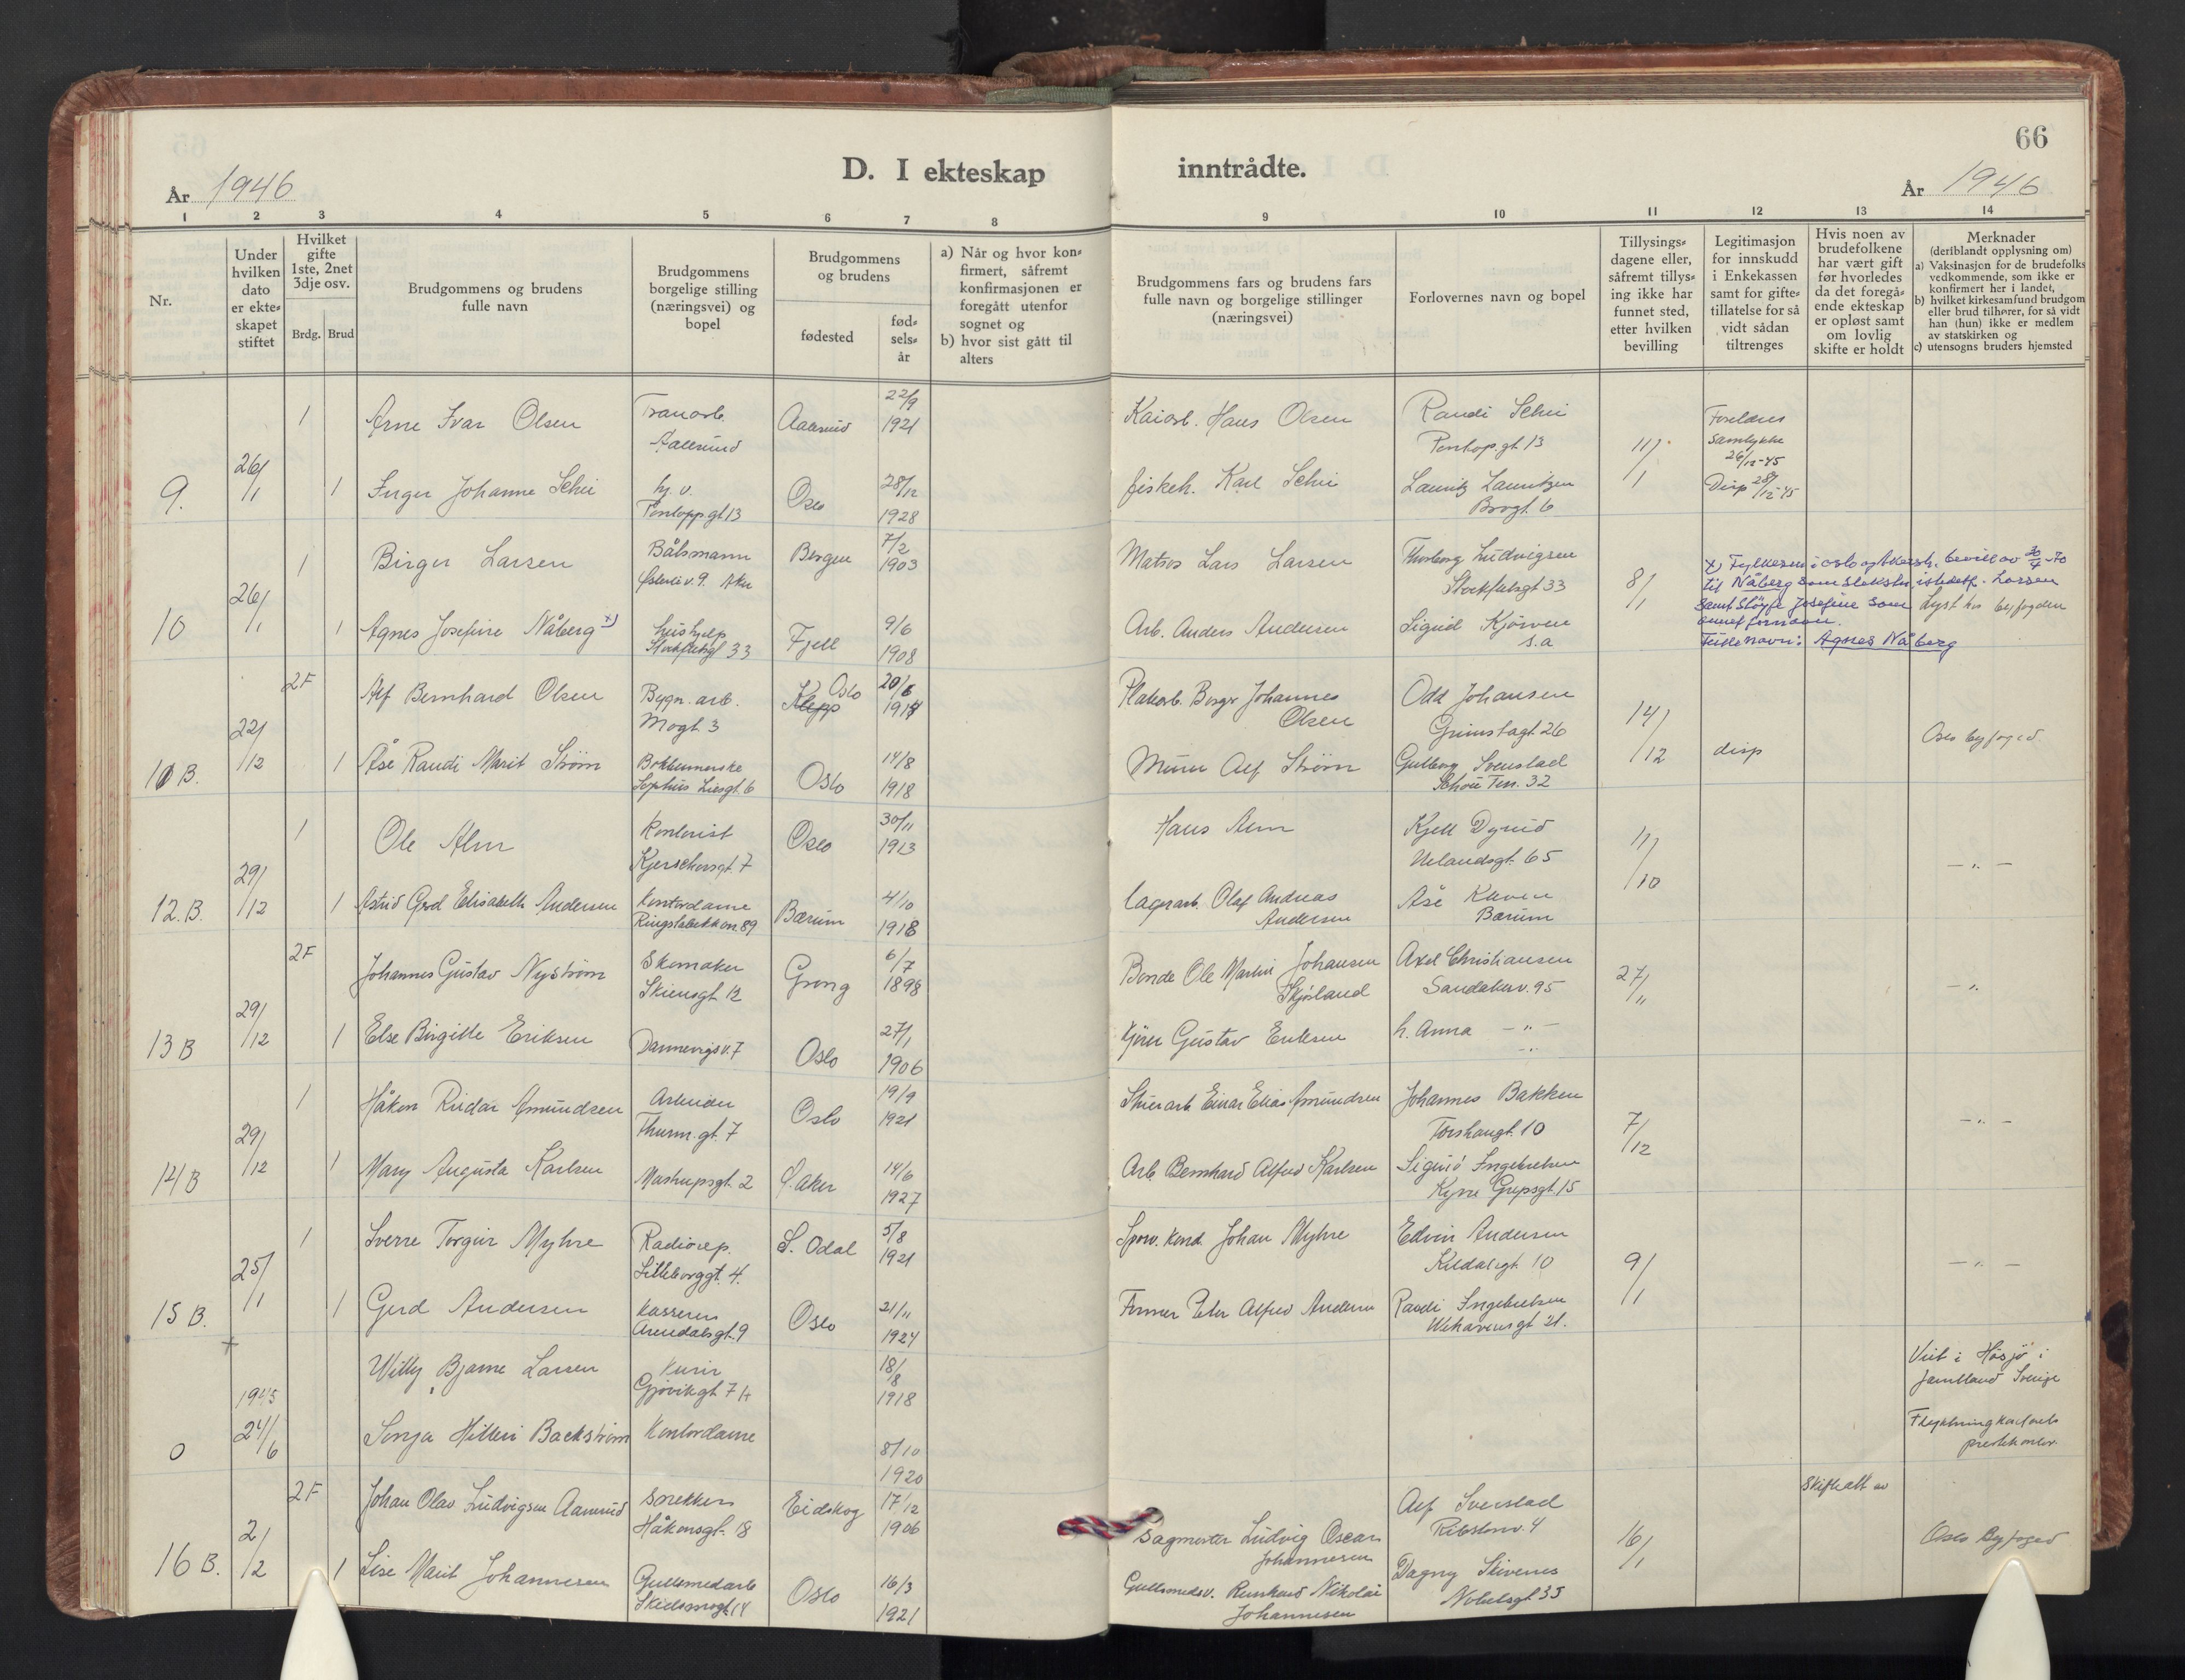 66
D. I ekteskap inntrådte.
År 1946
År 1946
1 2 3 4 5 6 7 8 9 10 11 12 13 14
Nr.
Under hvilken dato er ekte-skapet stiftet
Hvilket gifte 1ste, 2net 3dje osv.
Brdg. Brud
Brudgommens og brudens fulle navn
Brudgommens borgelige stilling (næringsvei) og bopel
Brudgommens og brudens
fødested
fød-sels-år
a) Når og hvor kon-firmert, såfremt konfirmasjonen er foregått utenfor sognet og
b) hvor sist gått til alters
Brudgommens fars og brudens fars fulle navn og borgelige stillinger (næringsvei)
Forlovernes navn og bopel
Tillysings-dagene eller, såfremt tillys-ing ikke har funnet sted, etter hvilken bevilling
Legitimasjon for innskudd i Enkekassen samt for gifte-tillatelse for så vidt sådan tiltrenges
Hvis noen av brudefolkene har vært gift før hvorledes da det foregå-ende ekteskap er opløst samt om lovlig skifte er holdt
Merknader (deriblandt opplysning om)
a) Vaksinasjon for de brudefolks vedkommende, som ikke er konfirmert her i landet,
b) hvilket kirkesamfund brudgom eller brud tilhører, for så vidt han (hun) ikke er medlem av statskirken og
c) utensogns bruders hjemsted
1 Arne Ivar Olsen Tranarb. Aalesund Aalesund 22/9 1921 Kaiarb. Hans Olsen Randi Schii Pontop.gt 13
Foreldres samtykke 26/12-45
9. 26/1 1 Inger Johanne Schii hj. v. Pontopp.gt 13 Oslo 28/12 1928 fiskeh. Karl Schii Lauritz Lauritzen Brogt. 6 11/1 Disp 28/12-45
1 Birger Larsen Båtsmann Østreiv. 9. Aker Bergen 7/2 1903 Matros Lars Larsen Thorborg Ludvigsen Stockfletsgt 33
10 26/1 1 Agnes Josefine Nåberg x) hushjelp Stockfletsgt 33 Fjell 9/6 1908 Arb. Anders Andersen Sigrid Kjörven s.a 8/1
x) Fylkesm. i Oslo og Akersh. bevill av 20/4-70
til Nåberg som slektsn. istedetf. Larsen
samt sløyfe Josefine som
annet fornavn.
Fulle navn: Agnes Nåberg
Lyst hos byfogden
2F Alf Bernhard Olsen Bygn. arb. Mogt. 3 Klepp Oslo 20/6 1914 Platearb. Borger Johannes Olsen Odd Johansen Grimstagt 26
10 B. 22/12 1 Åse Randi Marit Strøm Sophus Liesgt. 6 Oslo 14/8 1918 Murer Alf Strøm Gullborg Svenstad 32 14/12 disp Oslo byfoged
1 Ole Alm Kontorist Kjerschowsgt. 7 Oslo 30/11 1913 Hans Alm Kjell Dyrud Uelandsgt. 65
12. B. 29/12 1 Astrid Gerd Elisabeth Andersen Kontordame Ringstabekkvn. 89 Bærum 4/10 1918 Lagerarb. Olaf Andreas Andersen Åse Kaven Bærum 11/10 — " —
2F Johannes Gustav Nystrøm Skomaker Skiensgt. 12 Grong 6/7 1898 Bonde Ole Martin Johansen Skjörland Axel Christiansen Sandakerv. 95
13 B 29/12 1 Else Birgitte Eriksen Dannevigsv. 7 Oslo 27/1 1906 Kjører Gustav Eriksen h. Anna — " — 27/11 — "
1 Håkon Reidar Amundsen Arbeider Thurm.gt. 7 Oslo 19/9 1921 Einar Elias Amundsen Johannes Bakken Torshaugt. 10
14 B 29/12 1 Mary Augusta Karlsen Mastrupsgt. 2 Ø. Aker 14/6 1927 Arb. Bernhard Alfred Karlsen Sigurd Ingebretsen Kyrre Grepsgt. 15 7/12 — " —
1 Sverre Torgeir Myhre Radiorep. Lilleborggt. 4. S. Odal 5/8 1921 Sporv. kond. Johan Myhre Edvin Andersen Kildalsgt. 10
15 B. 25/1 1 Gerd Andersen Kassererske Arendalsgt. 9 Oslo 21/11 1924 Former Peter Alfred Andersen Randi Ingebretsen 21. 9/1 — " —
Willy Bjarne Larsen Kurer Gjøvikgt 7 H 18/8 1918
Viet i Håsjö i Jämtland Sverige
0 1945 24/6 Sonja Hillevi Backström Kontordame 8/10 1920
Flyktningkontorets prestekontor.
2F Johan Olav Ludvigsen Aamrud Snekker Håkonsgt. 18 Eidskog 17/12 1906 Sagmester Ludvig Oscar Johannesen Alf Sverstad Ribstonv. 4 Skifteatt av
16 B. 2/2 1 Lise Marit Johannesen Gullsmedarb. Skedsmogt. 14 Oslo 16/3 1921 Gullsmedsv. Reinhard Nikolai Johannesen Dagny Stivenes Nobelsgt 35 16/1 Oslo Byfoged